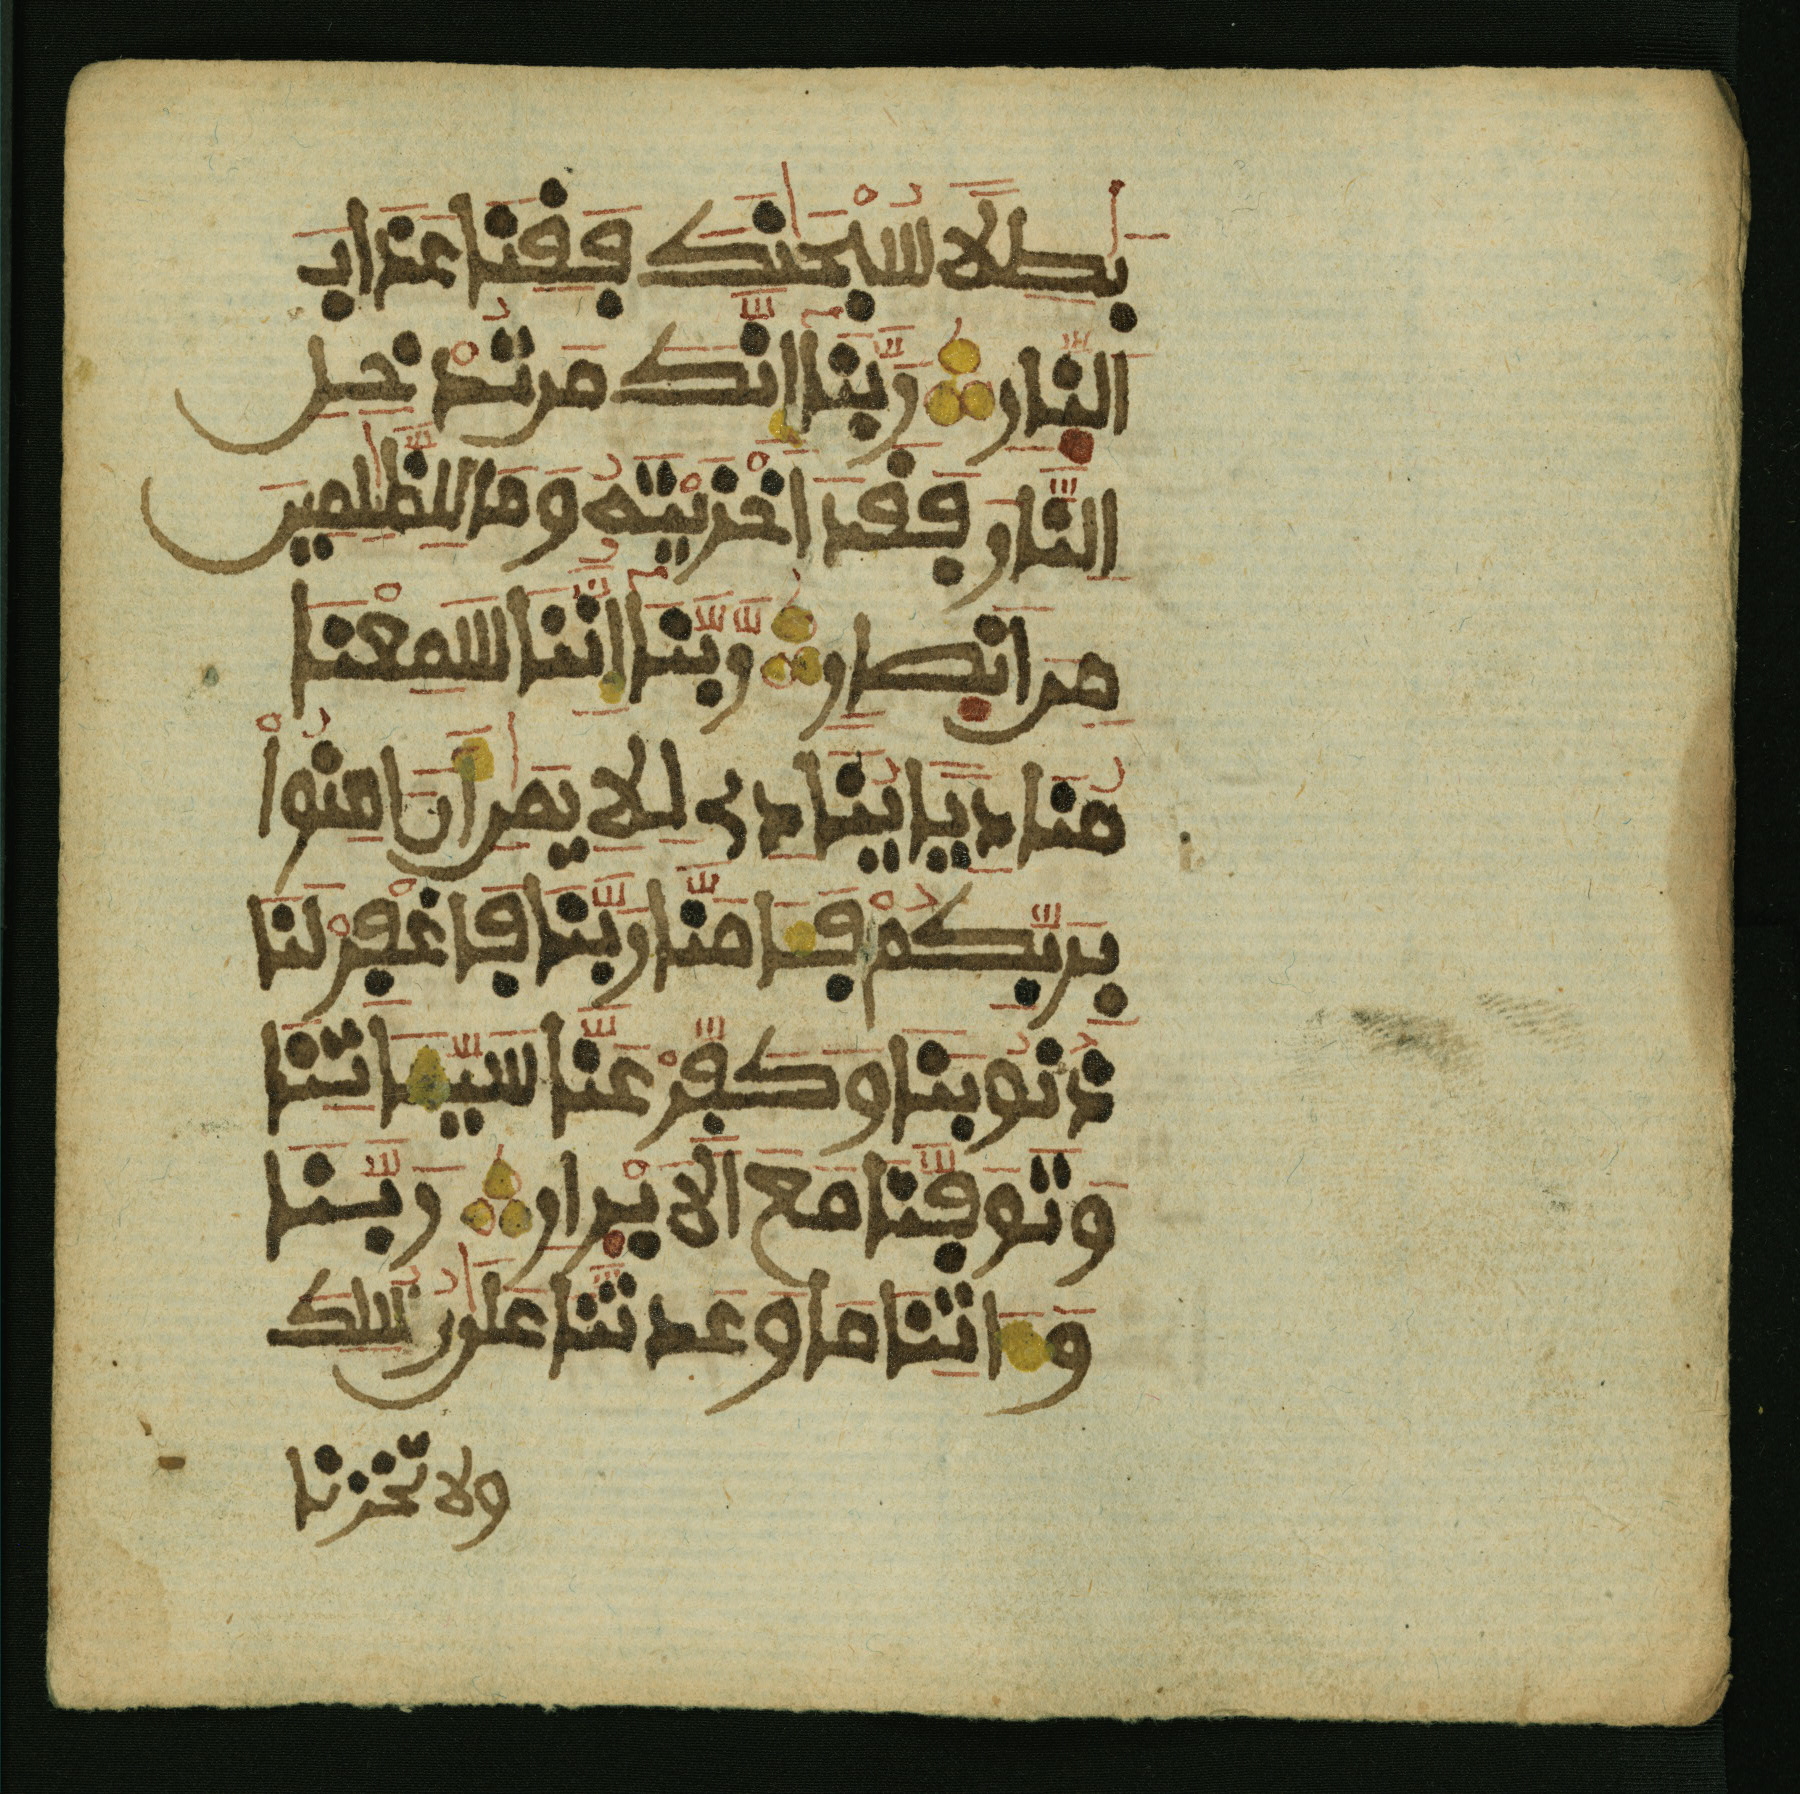 بَٰطِلًا سُبْحَٰنَكَ فَقِنَا عَذَابَ
النَّارِ رَبَّنَا إِنَّكَ مَن تُدْخِلِ
النَّارَ فَقَدْ أَخْزَيْتَهُ وَمَا لِلظَّٰلِمِينَ
مِنَ انصَارٍ رَّبَّنَا إِنَّنَا سَمِعْنَا
مُنَادِيًا يُنَادِى لِلِايمَٰنِ أَنَ اٰمِنُواْ
بِرَبِّكُمْ فَـَٔامَنَّا رَبَّنَا فَاغْفِرْ لَنَا
ذُنُوبَنَا وَكَفِّرْ عَنَّا سَيِّـَٔاتِنَا
وَتَوَفَّنَا مَعَ الَابْرَارِ رَبَّنَا
وَءَاتِنَا مَا وَعَدتَّنَا عَلَىٰ رُسُلِكَ
ولا تخزنا